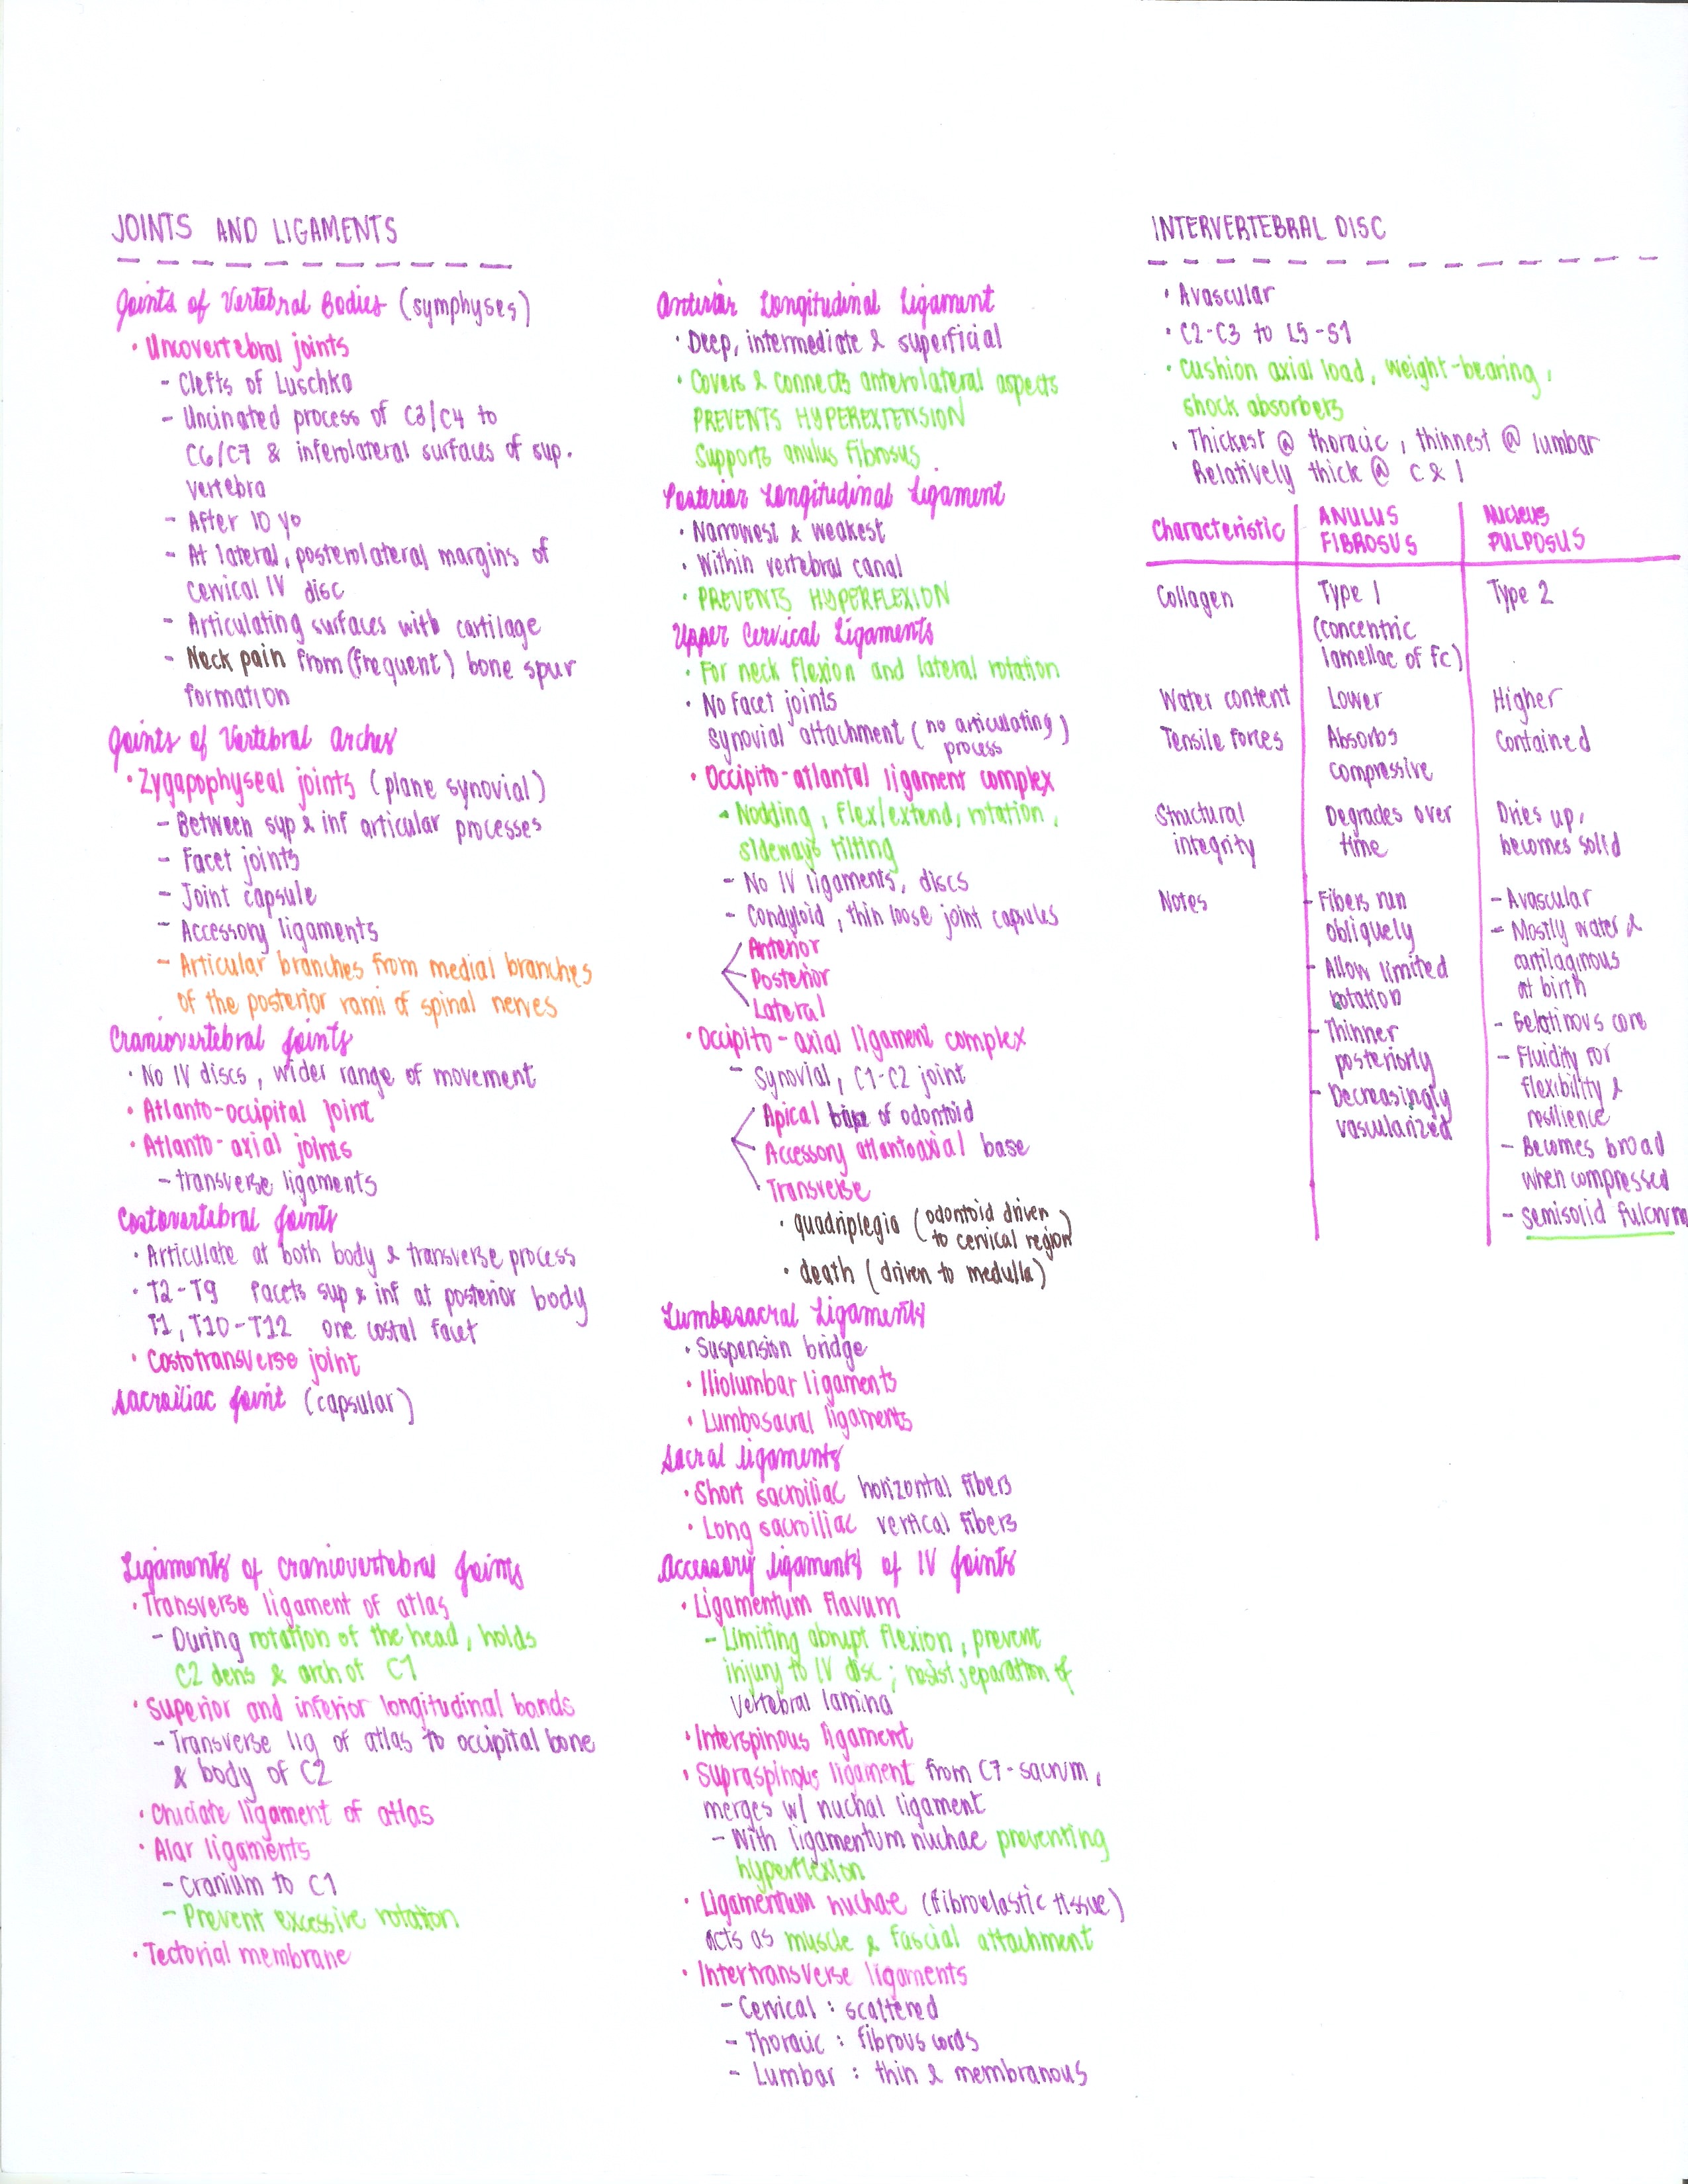 JOINTS AND LIGAMENTS
Joints of Vertebral Bodies (symphyses)
• Uncovertebral joints
- Clefts of Luschka
- Uncinated process of C3/C4 to
C6/C7 & inferolateral surfaces of sup.
vertebra
- After 10 yo
- At lateral, posterolateral margins of
cervical IV disc
- Articulating surfaces with cartilage
- Neck pain from (frequent) bone spur
formation
Joints of Vertebral Arches
• Zygapophyseal joints (plane synovial)
- Between sup & inf articular processes
- Facet joints
- Joint capsule
- Accessory ligaments
- Articular branches from medial branches
of the posterior rami of spinal nerves
Craniovertebral Joints
• No IV discs, wider range of movement
• Atlanto-occipital joint
• Atlanto-axial joints
- transverse ligaments
Costovertebral Joints
• Articulate at both body & transverse process
• T2-T9 facets sup & inf at posterior body
T1, T10-T12 one costal facet
• Costotransverse joint
Sacroiliac Joint (capsular)
Ligaments of Craniovertebral Joints
• Transverse ligament of atlas
- During rotation of the head, holds
C2 dens & arch of C1
• Superior and inferior longitudinal bands
- Transverse lig of atlas to occipital bone
& body of C2
• Cruciate ligament of atlas
• Alar ligaments
- Cranium to C1
- Prevent excessive rotation
• Tectorial membrane
Anterior Longitudinal Ligament
• Deep, intermediate & superficial
• Covers & connects anterolateral aspects
PREVENTS HYPEREXTENSION
Supports anulus fibrosus
Posterior Longitudinal Ligament
• Narrowest & weakest
• Within vertebral canal
• PREVENTS HYPERFLEXION
Upper Cervical Ligaments
• For neck flexion and lateral rotation
• No facet joints
Synovial attachment (no articulating
process)
• Occipito-atlantal ligament complex
- Nodding, flex/extend, rotation,
sideways tilting
- No IV ligaments, discs
- Condyloid, thin loose joint capsules
Anterior
Posterior
Lateral
• Occipito-axial ligament complex
- Synovial, C1-C2 joint
Apical of odontoid
Accessory atlantoaxial base
Transverse
• quadriplegia (odontoid driven
to cervical region)
• death (driven to medulla)
Lumbosacral Ligaments
• Suspension bridge
• Iliolumbar ligaments
• Lumbosacral ligaments
Sacral Ligaments
• Short sacroiliac horizontal fibers
• Long sacroiliac vertical fibers
Accessory Ligaments of IV Joints
• Ligamentum flavum
- Limiting abrupt flexion, prevent
injury to IV disc; resist separation of
vertebral lamina
• Interspinous ligament
• Supraspinous ligament from C7-sacrum,
merges w/ nuchal ligament
- With ligamentum nuchae preventing
hyperflexion
• Ligamentum nuchae (fibroelastic tissue)
acts as muscle & fascial attachment
• Intertransverse ligaments
- Cervical : scattered
- Thoracic : fibrous cords
- Lumbar : thin & membranous
INTERVERTEBRAL DISC
• Avascular
• C2-C3 to L5-S1
• Cushion axial load, weight-bearing,
shock absorbers
• Thickest @ thoracic, thinnest @ lumbar
Relatively thick @ C & l
Characteristic ANULUS FIBROSUS Nucleus PULPOSUS
Collagen Type 1 Type 2
(concentric
lamellae of fc)
Water content Lower Higher
Tensile forces Absorbs Contained
compressive
Structural Degrades over Dries up,
integrity time becomes solid
Notes
- Fibers run
obliquely
- Allow limited
rotation
- Thinner
posteriorly
- Decreasingly
vascularized
- Avascular
- Mostly water &
cartilaginous
at birth
- Gelatinous core
- Fluidity for
flexibility &
resilience
- Becomes broad
when compressed
- semisolid fulcrum